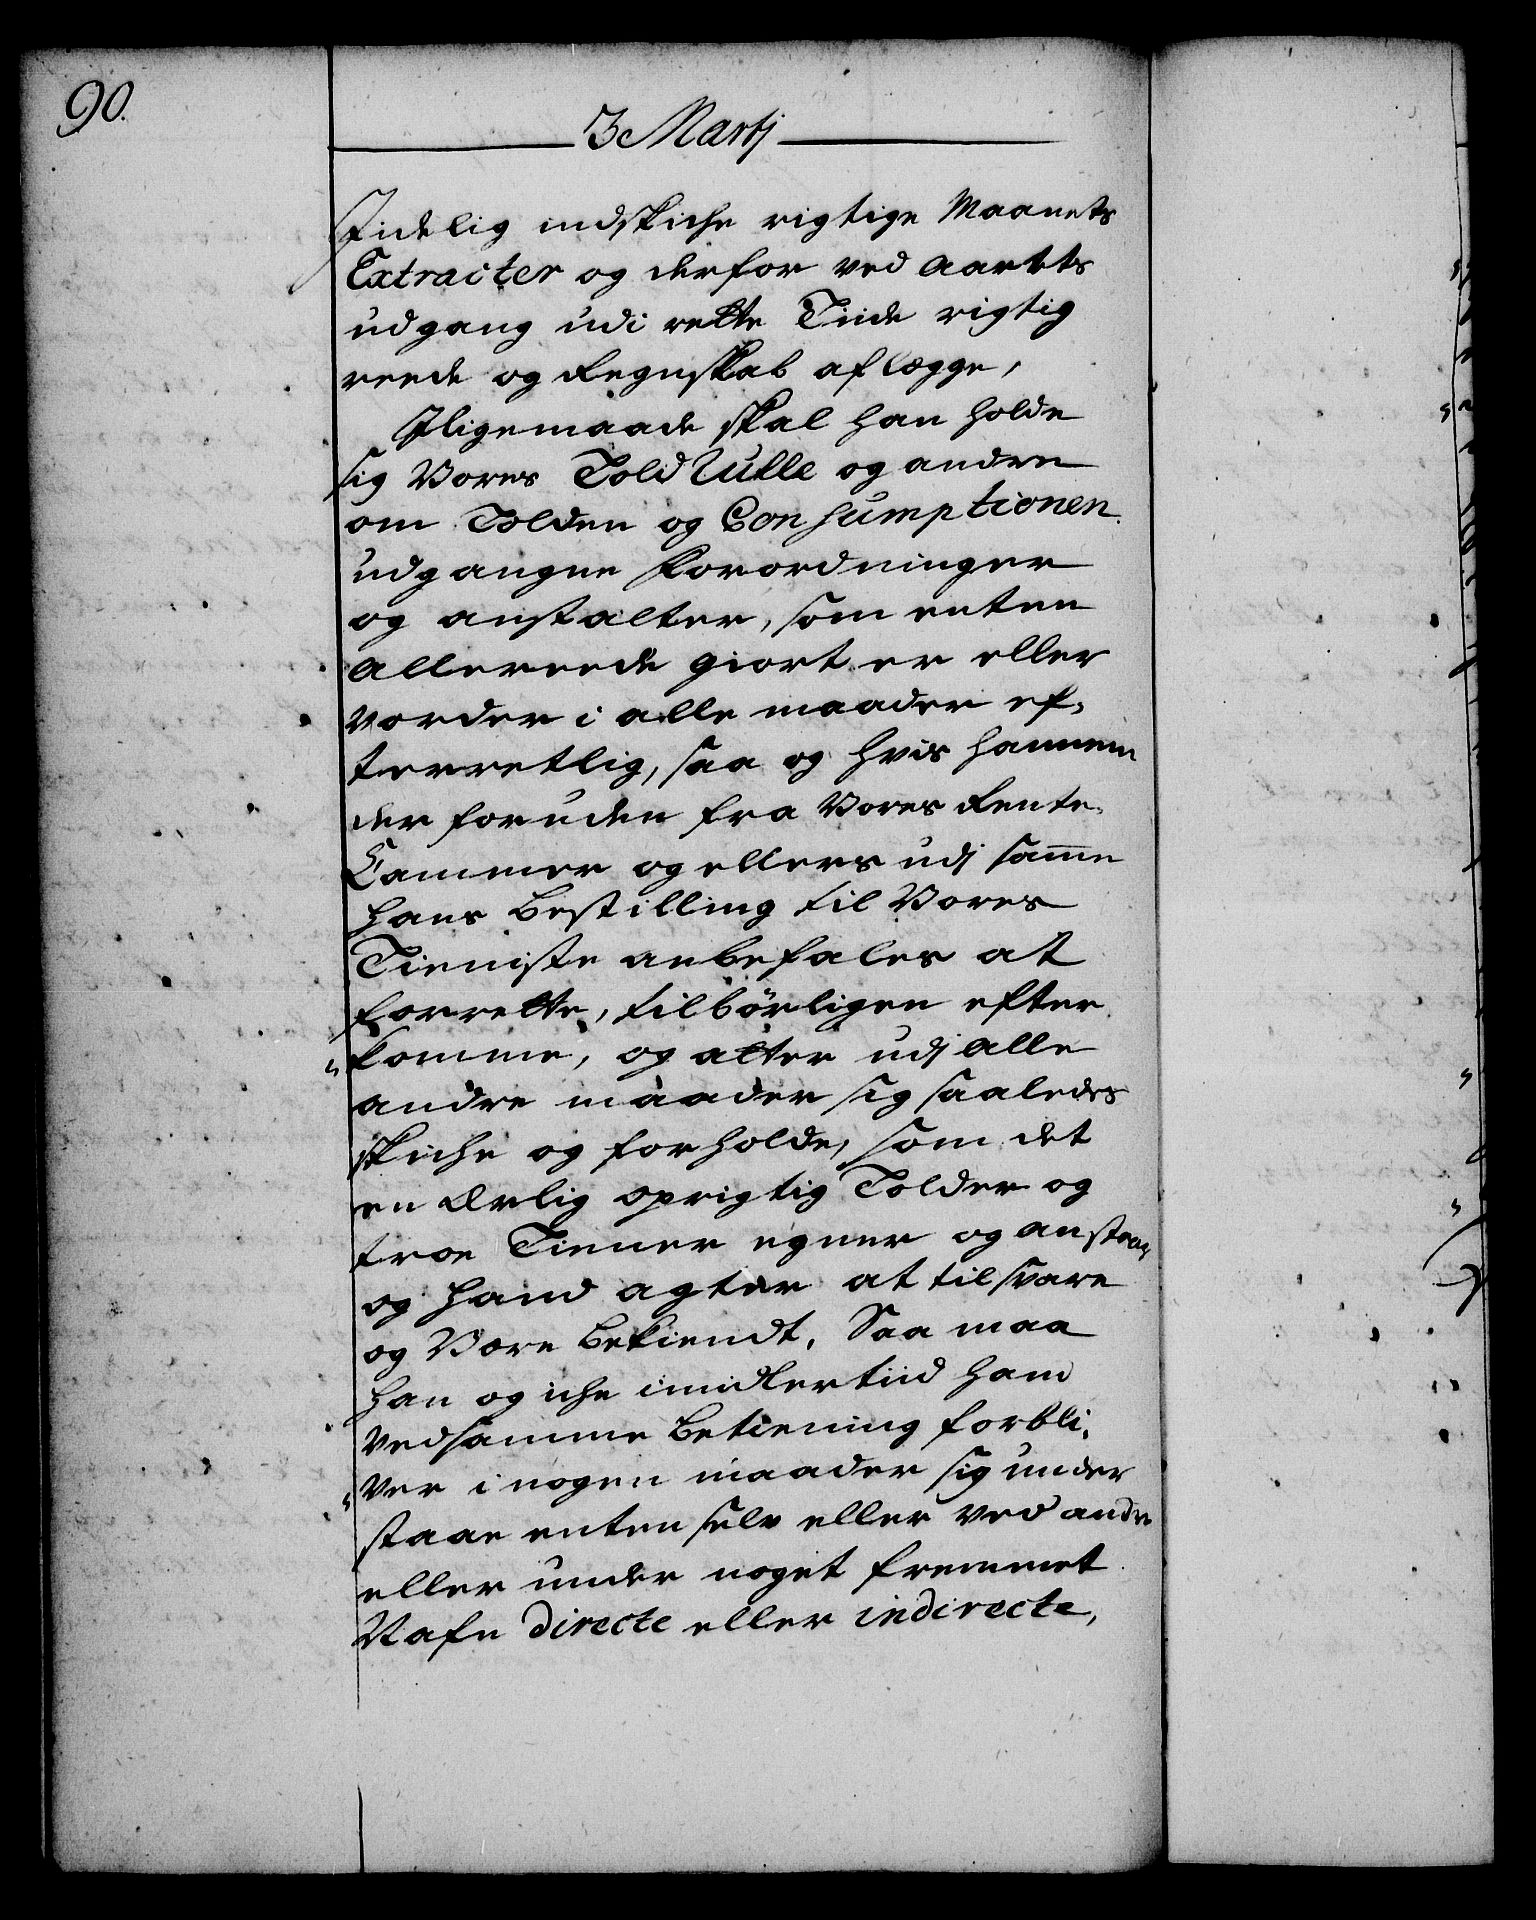 90.
3 Martj
Tidelig indskiche rigtige Maanets
Extracter og derfor ved Aarets
udgang udi rette Tiide rigtig
reede og Regnskab aflægge,
Iligemaade skal han holde
sig Vores Told Rulle og andre
om Tolden og Consumptionen
udgangne Forordninger
og anstalter, som enten
allereede giort er eller
vorder i alle maader ef-
terretlig, saa og hvis hannem
der foruden fra Vores Rente-
Cammer og ellers udj samme
hans bestilling til Vores
Tieniste anbefales at
forrette, tilbørligen efter
"komme, og alter udj alle
andre maader sig saaledes
skiche og forholde, som det
en Ærlig oprigtig Tolder og
troe Tienner egner og anstaar
og hand agter at tilsvare
og Være bekiendt. Saa maa
han og iche imidlertiid hand
ved samme betiening forbli-
"ver i nogen maader sig under
staae enten selv eller ved andre
eller under noget fremmet
Nafn directe eller indirecte,